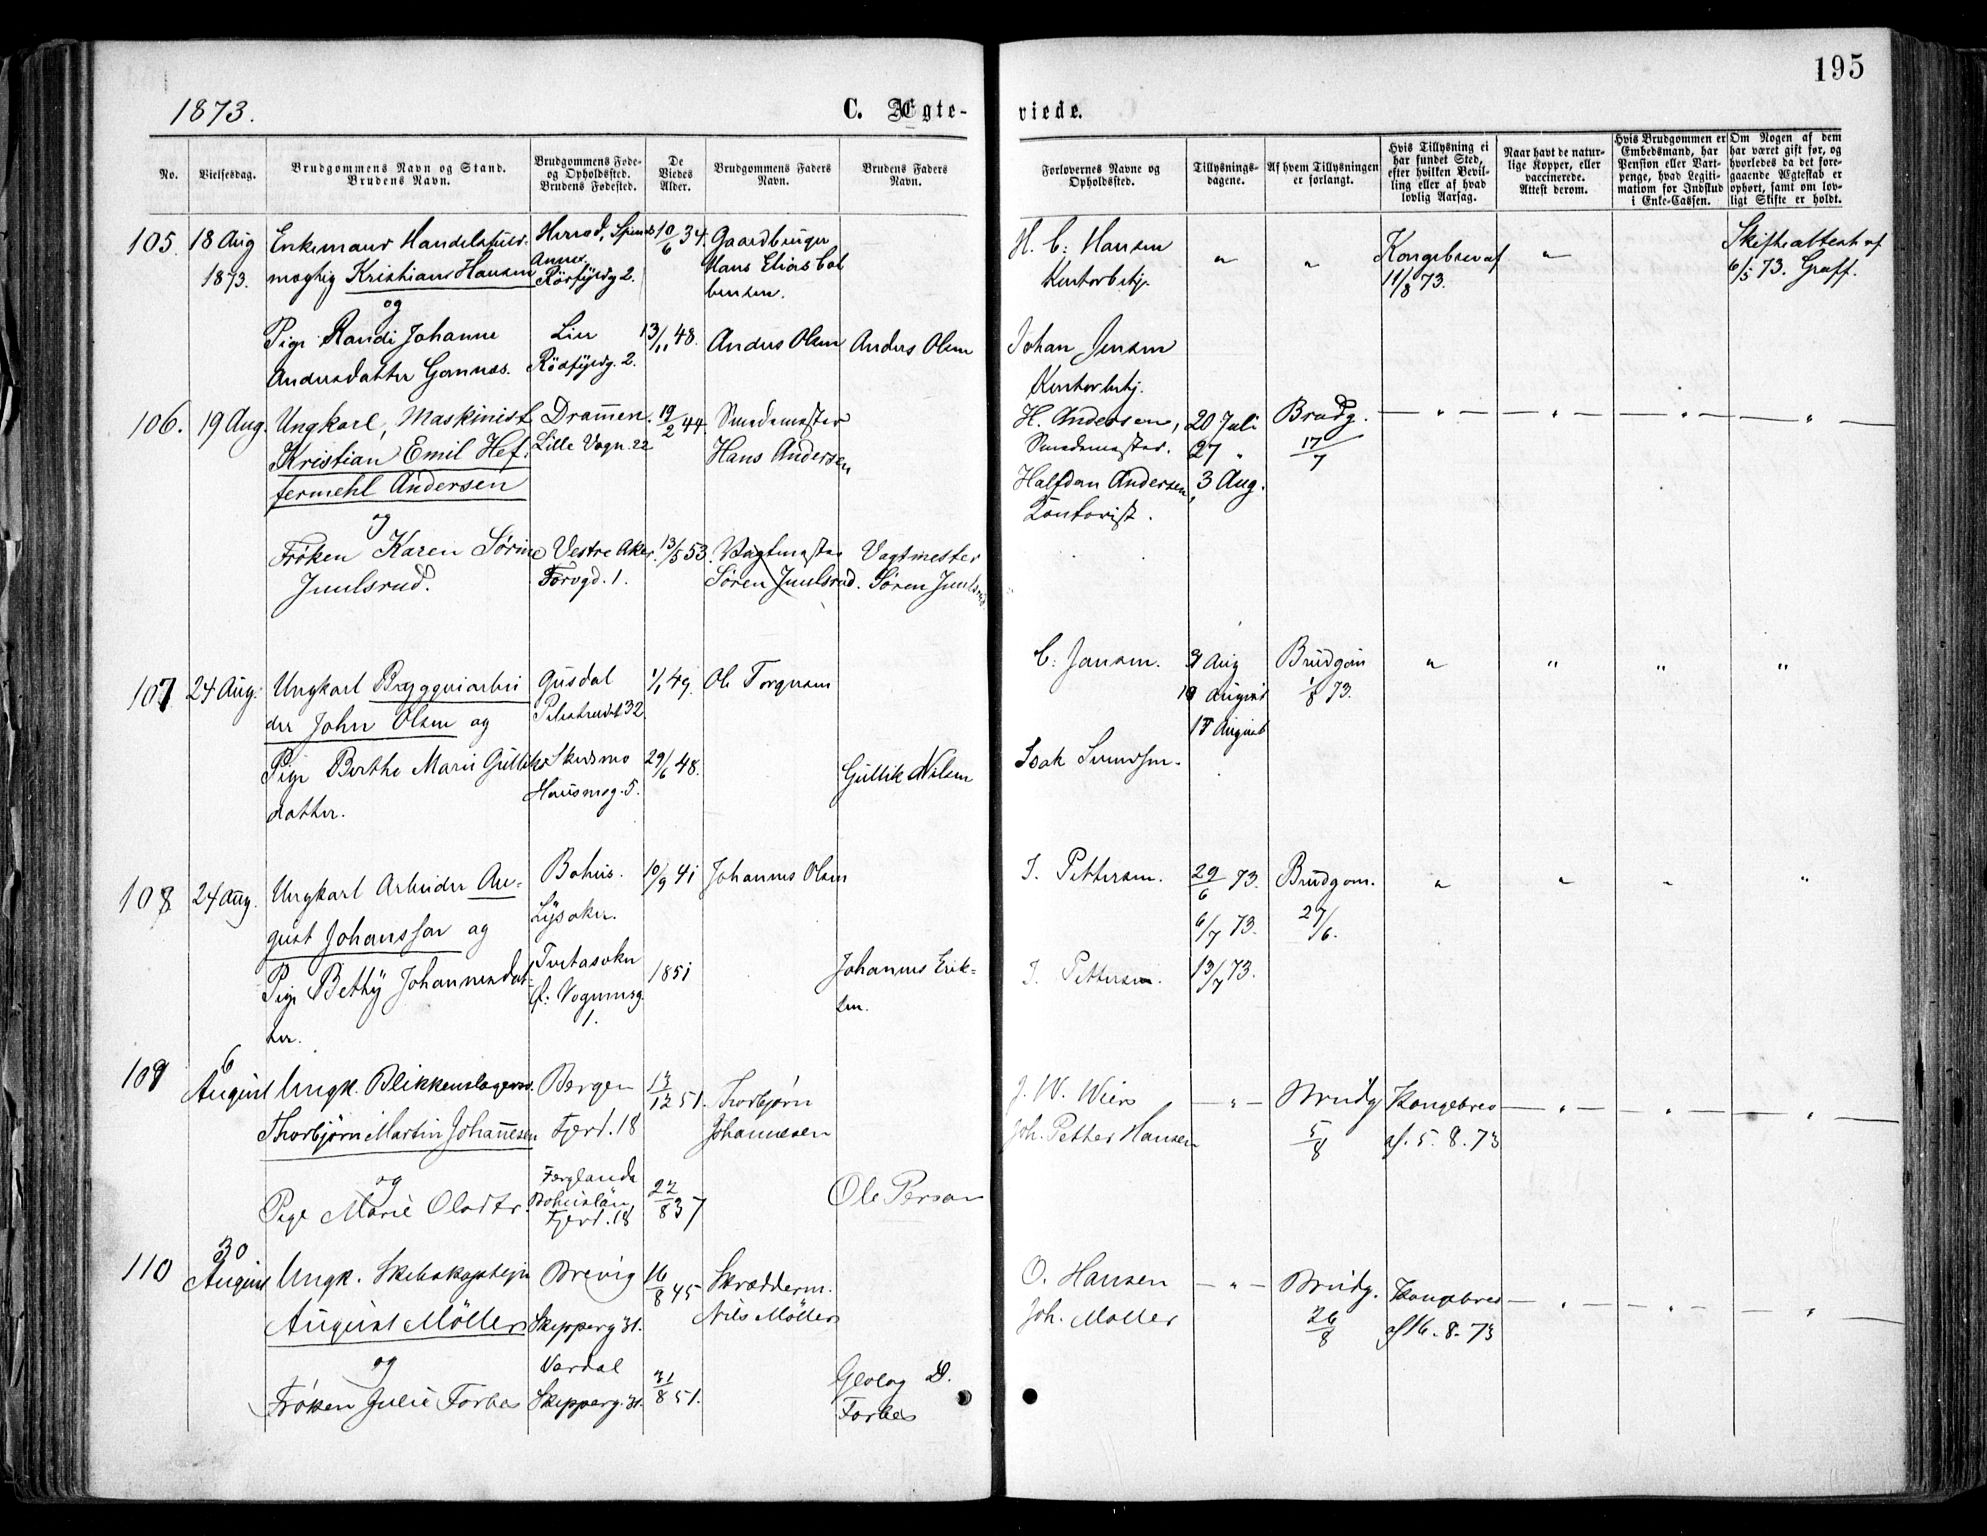 195
1873.
C. Ægte-
viede.
No.
Vielsesdag.
Brudgommens Navn og Stand.
Brudens Navn.
Brudgommens Føde-
og Opholdssted.
Brudens Fødested.
De
Viedes
Alder.
Brudgommens Faders
Navn.
Brudens Faders
Navn.
Forlovernes Navne og
Opholdssted.
Tillysnings-
dagene.
Af hvem Tillysningen
er forlangt.
Hvis Tillysning ei
har fundet Sted,
efter hvilken Bevil-
ling eller af hvad
lovlig Aarsag.
Naar havt de natur-
lige Kopper, eller
vaccinerede.
Attest derom.
Hvis Brudgommen er
Embedsmand, har
Pension eller Vart-
penge, hvad Legiti-
mation for Indskud
i Enke-Cassen.
Om Nogen af dem
har været gift før, og
hvorledes da det fore-
gaaende Ægteskab er
ophørt, samt om lov-
ligt Skifte er holdt.
105. 18 Aug
1873.
Enkemand Handelsfuld-
mægtig Kristian Hansen
og
Pige Randi Johanne
Andersdatter
Lier
10/6 34.
13/11 48.
Gaardbruger
Hans
Anders Olsen
Anders Olsen
H. C. Hansen
Kontorbetj.
Johan Jensen
Kontorbetj.
" "
Kongebrev af
11/8 73.
"
Skifteattest af
6/5 73. Graff.
106. 19 Aug.
Ungkarl, Maskinist
Kristian Emil Hef-
fermehl Andersen
og
Frøken Karen Sørine
Juulsrud.
Drammen.
Lille Vogn. 22
Vestre Aker.
Torvgd. 1.
19/2 44.
13/5 53.
Smedemester
Hans Andersen
Vagtmester
Søren Juulsrud.
Vagtmester
Søren Juulsrud
H. Andersen,
Smedemester.
Halfdan Andersen,
Kontorist.
20 Juli
27 "
3 Aug.
Brudg.
17/7
— " — " — " — " —
107 24 Aug.
Ungkarl Bryggeriarbei
der John Olsen og
Pige Berthe Marie Gulliks
datter.
Gusdal
Pilestredet 32
Skedsmo
Hausmsg. 5.
1/1 49.
29/6 48.
Ole
Gullik Nilsen
C. Jansen.
Isak
Aug
10 August
17 August
Brudgom
1/8 73.
" " " "
108 24 Aug.
Ungkarl Arbeider Au-
gust Johansson og
Pige Bethy Johannesdat-
ter.
Bohus.
Lysaker.
1.
10/9 41
1851
Johannes Olsen
Johannes Erik-
sen.
I. Pettersen.
I. Pettersen.
29/6 73.
6/7 73.
13/7 73.
Brudgom.
27/6.
" " " "
109 6
August
Ungk. Blikkenslagersv.
Thorbjørn Martin Johannesen
og
Pige Marie Olsdtr.
Bergen
Fjerd. 18
Bohuslän
Fjerd. 18
13/12 51.
22/8 37
Thorbjørn
Johannesen
Ole Person
J. W. Wiers
Joh. Petter Hansen
— " —
Brudg
5/8
Kongebrev
af. 5. 8. 73
— " — " — " —
110 30
August
Ungk. Skibskaptejn
August Möller
og
Frøken Julie Forbes
Brevig
Skipperg 31.
Vardal
Skipperg. 31.
16/8 45
31/8 51.
Skrædderm.
Nils Möller
Geolog D.
Forbes
O. Hansen
Joh. Moller
— " —
Brudg.
26/8
Kongebrev
af 16. 8. 73
— " — " — " —